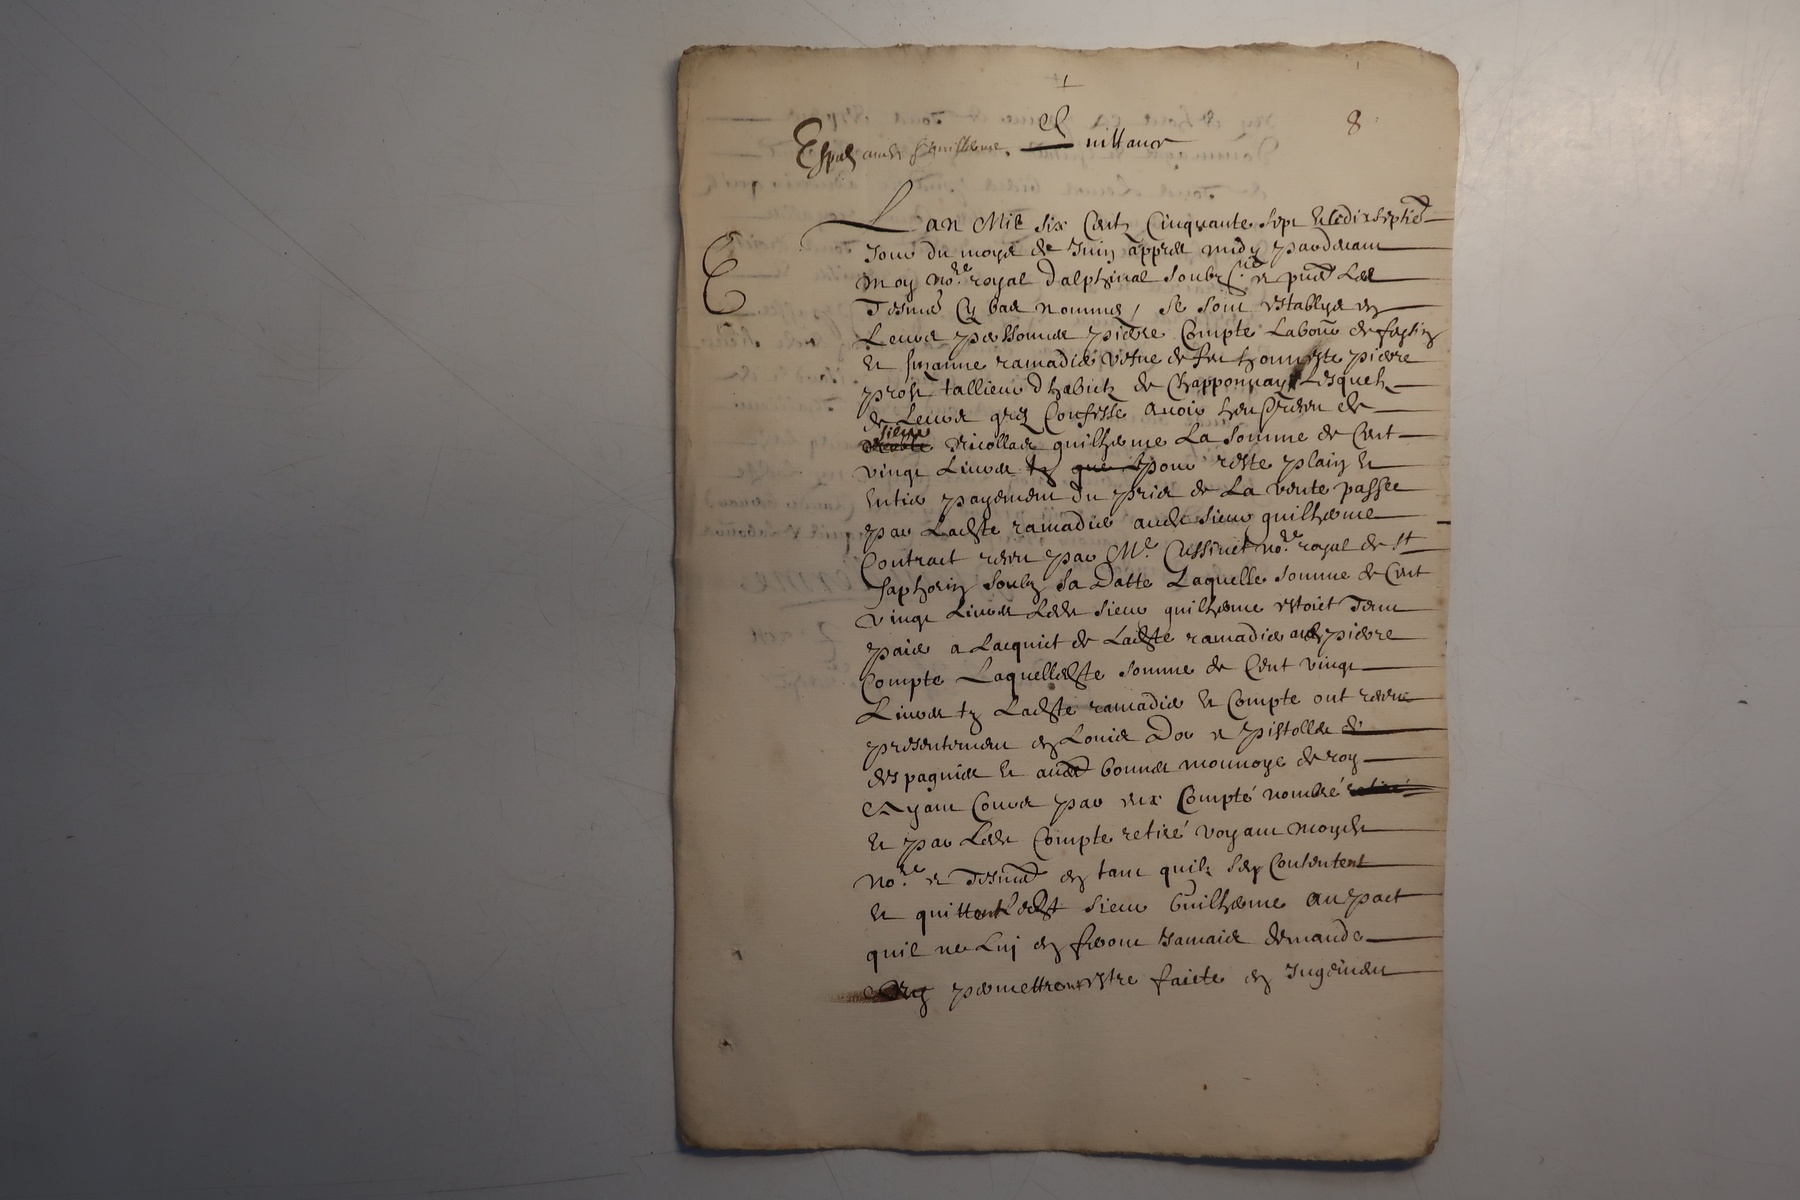 8
Quittance
Lan Mil six Centz Cinquante sept et le dixseptie
Jour du moys de Juin appres midy pardevant
moy No.re royal dalphinal soubz.ne et pnt Les
Tesmo Cy bas nommes, se sont establys en
Leurs personnes pierre Compte Labour de feysin
et suzanne ramadie vefve de feu honneste pierre
tallieur dhabitz de Chapponnay Lesquels
de Leurs grez Confesse avoir heu et receu de
sieur Nicollas guilherme La somme de Cent
vingt Livres tz pour reste plain et
Entier payement du pris de La vente passee
par Ladite ramadie audit sieur guilherme
Contract receu par Me No.re royal de st
saphorin soubz sa Datte Laquelle somme de Cent
vingt Livres Ledit sieur guilherme estoict Tenu
paier a Lacquict de Ladite ramadie audit pierre
Compte Laquelledite somme de Cent vingt
Livres tz Ladite ramadie et Compte ont receu
presentement en Louis Dor et pistolles
despagnie et autre bonnes monnoye de roy
Ayant Cours par eux Compté nombré
et par Ledit Compte retiré voyant moydit
No.re et Tesmo en tant quilz sen Contentent
et quittent Ledit sieur Guilherme au pact
quil ne Luj en feront Jamais demande
permettre estre faicte en Jugement